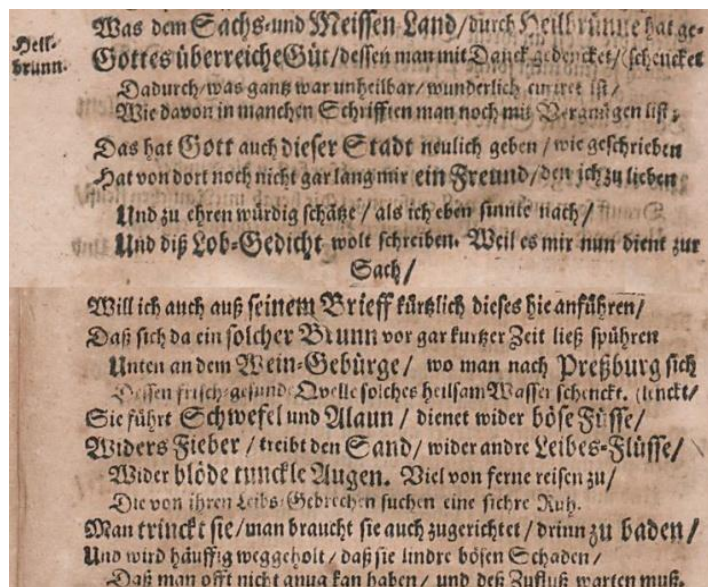 Heil-
brunn.
Was dem Sachs-und Meissen Land/durch Heilbrünne hat ge-
Gottes überreiche Güt/dessen man mit Danck gedencket/ (schencket
Dadurch/was gantz war unheilbar/wunderlich curiret ist/
Wie davon in manchen Schrifften man noch mit Vergnügen list;
Das hat Gott auch dieser Stadt neulich geben/wie geschrieben
Hat von dort noch nicht gar lang mir ein Freund/den ich zu lieben
Und zu ehren würdig schätze/als ich eben sinnte nach/
Und diß Lob-Gedicht wolt schreiben. Weil es mir nun dient zur
Sach/
Will ich auch auß seinem Brieff kürtzlich dieses hie anführen/
Daß sich da ein solcher Brunn vor gar kurtzer Zeit ließ spühren
Unten an dem Wein-Gebürge/ wo man nach Preßburg sich
Dessen frisch-gesunde Qvelle solches heilsam Wasser schenckt. (lenckt/
Sie führt Schwefel und Alaun/ dienet wider böse Füsse/
Widers Fieber/treibt den Sand/wider andre Leibes-Flüsse/
Wider blöde tunckle Augen. Viel von ferne reisen zu/
Die von ihren Leibs-Gebrechen suchen eine sichre Ruh.
Man trinckt sie/man braucht sie auch zugerichtet/drinn zu baden/
Und wird häuffig weggeholt/daß sie lindre bösen Schaden/
Daß man offt nicht gnug kan haben/ und deß Zufluß warten muß.